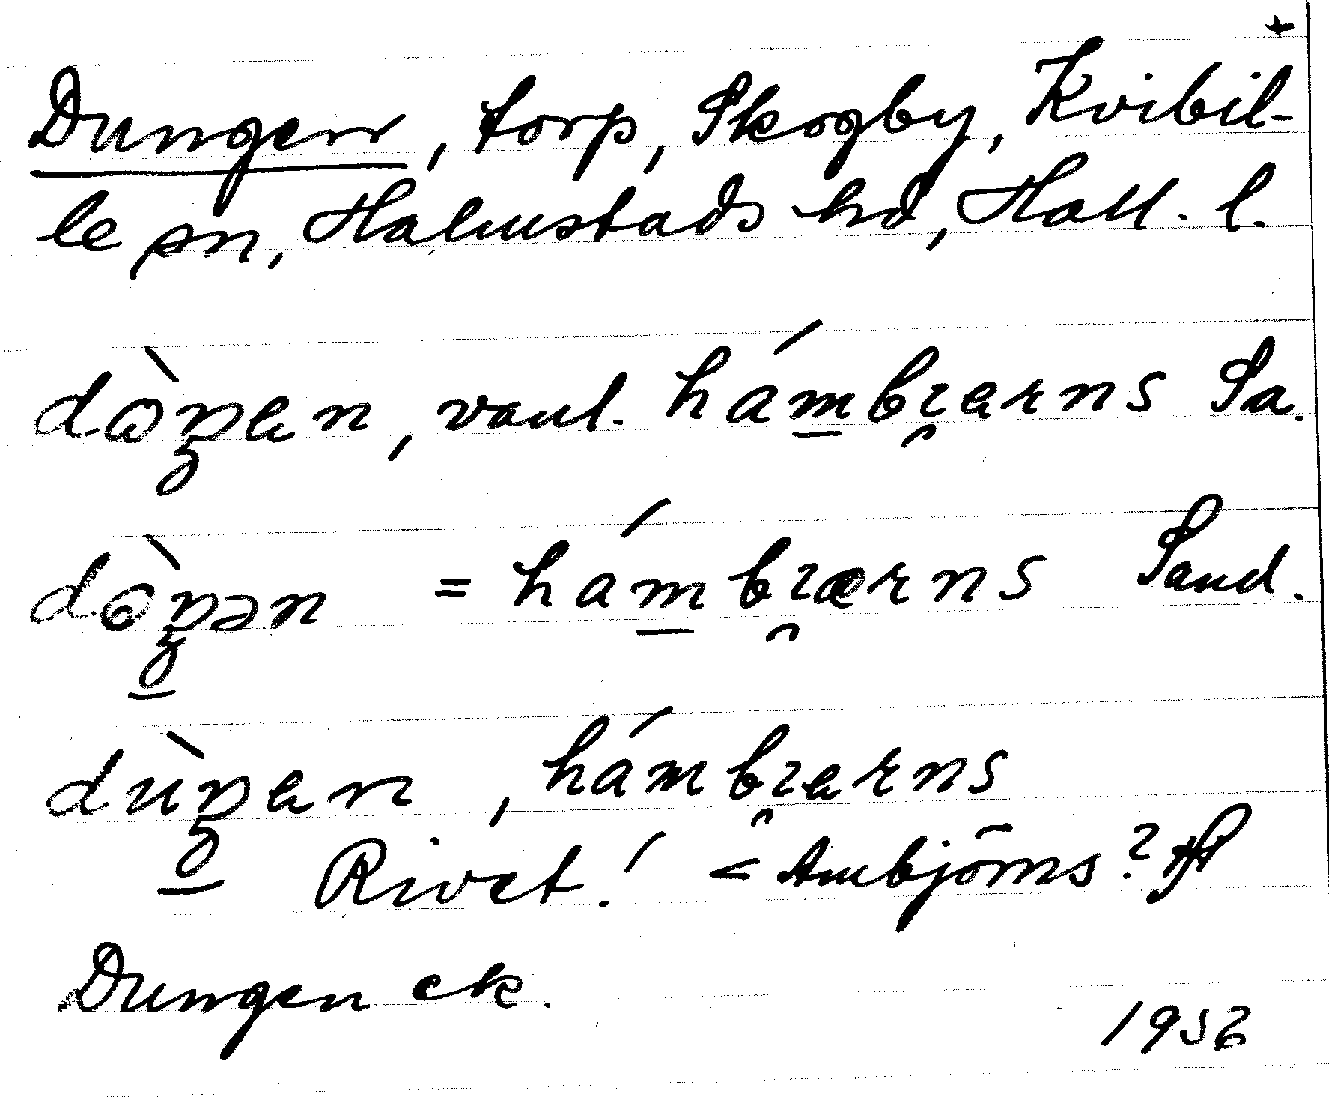 +
Dungen, torp, Skogby, Kvibil-
le sn, Halmstads hd, Hall. l.
dòŋɐn, vanl. hámbɿɐrns Sa.
dòŋən = hámbɿærns Sand.
dùŋɐn, hámbɿɐrns
Rivet! < Ambjörns?
Dungen ek.
1952